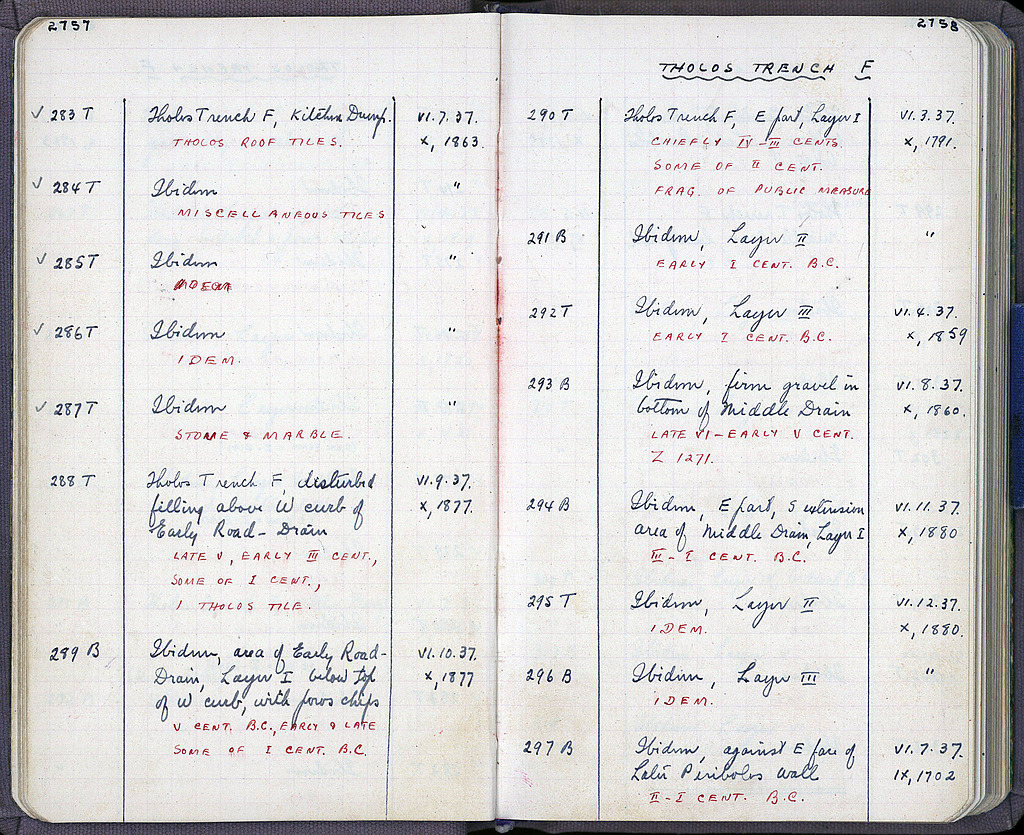 2757
✓ 283 T Tholos Trench F, Kitchen Dump. VI.7.37.
THOLOS ROOF TILES. X, 1863.
✓ 284 T Ibidem "
MISCELLANEOUS TILES
✓ 285 T Ibidem "
IDEM
✓ 286 T Ibidem "
IDEM.
✓ 287 T Ibidem "
STONE & MARBLE.
288 T Tholos Trench F, disturbed VI.9.37.
filling above W curb of X, 1877.
Early Road-Drain
LATE V, EARLY III CENT.,
SOME OF I CENT.,
1 THOLOS TILE.
289 B Ibidem, area of Early Road- VI.10.37.
Drain, Layer I below top X, 1877
of W curb, with poros chips
V CENT. B.C., EARLY & LATE
SOME OF I CENT. B.C.
2758
THOLOS TRENCH F
290 T Tholos Trench F, E part, Layer I VI.3.37.
CHIEFLY IV-III CENTS. X, 1791.
SOME OF II CENT.
FRAG. OF PUBLIC MEASURE
291 B Ibidem, Layer II "
EARLY I CENT. B.C.
292 T Ibidem, Layer III VI.4.37.
EARLY I CENT. B.C. X, 1859
293 B Ibidem, firm gravel in VI.8.37.
bottom of Middle Drain X, 1860.
LATE VI-EARLY V CENT.
Z 1271.
294 B Ibidem, E part, S extension VI.11.37.
area of Middle Drain, Layer I X, 1880
III-I CENT. B.C.
295 T Ibidem, Layer II VI.12.37.
IDEM. X, 1880.
296 B Ibidem, Layer III "
IDEM.
297 B Ibidem, against E face of VI.7.37.
Later Peribolos Wall IX, 1702
II-I CENT. B.C.